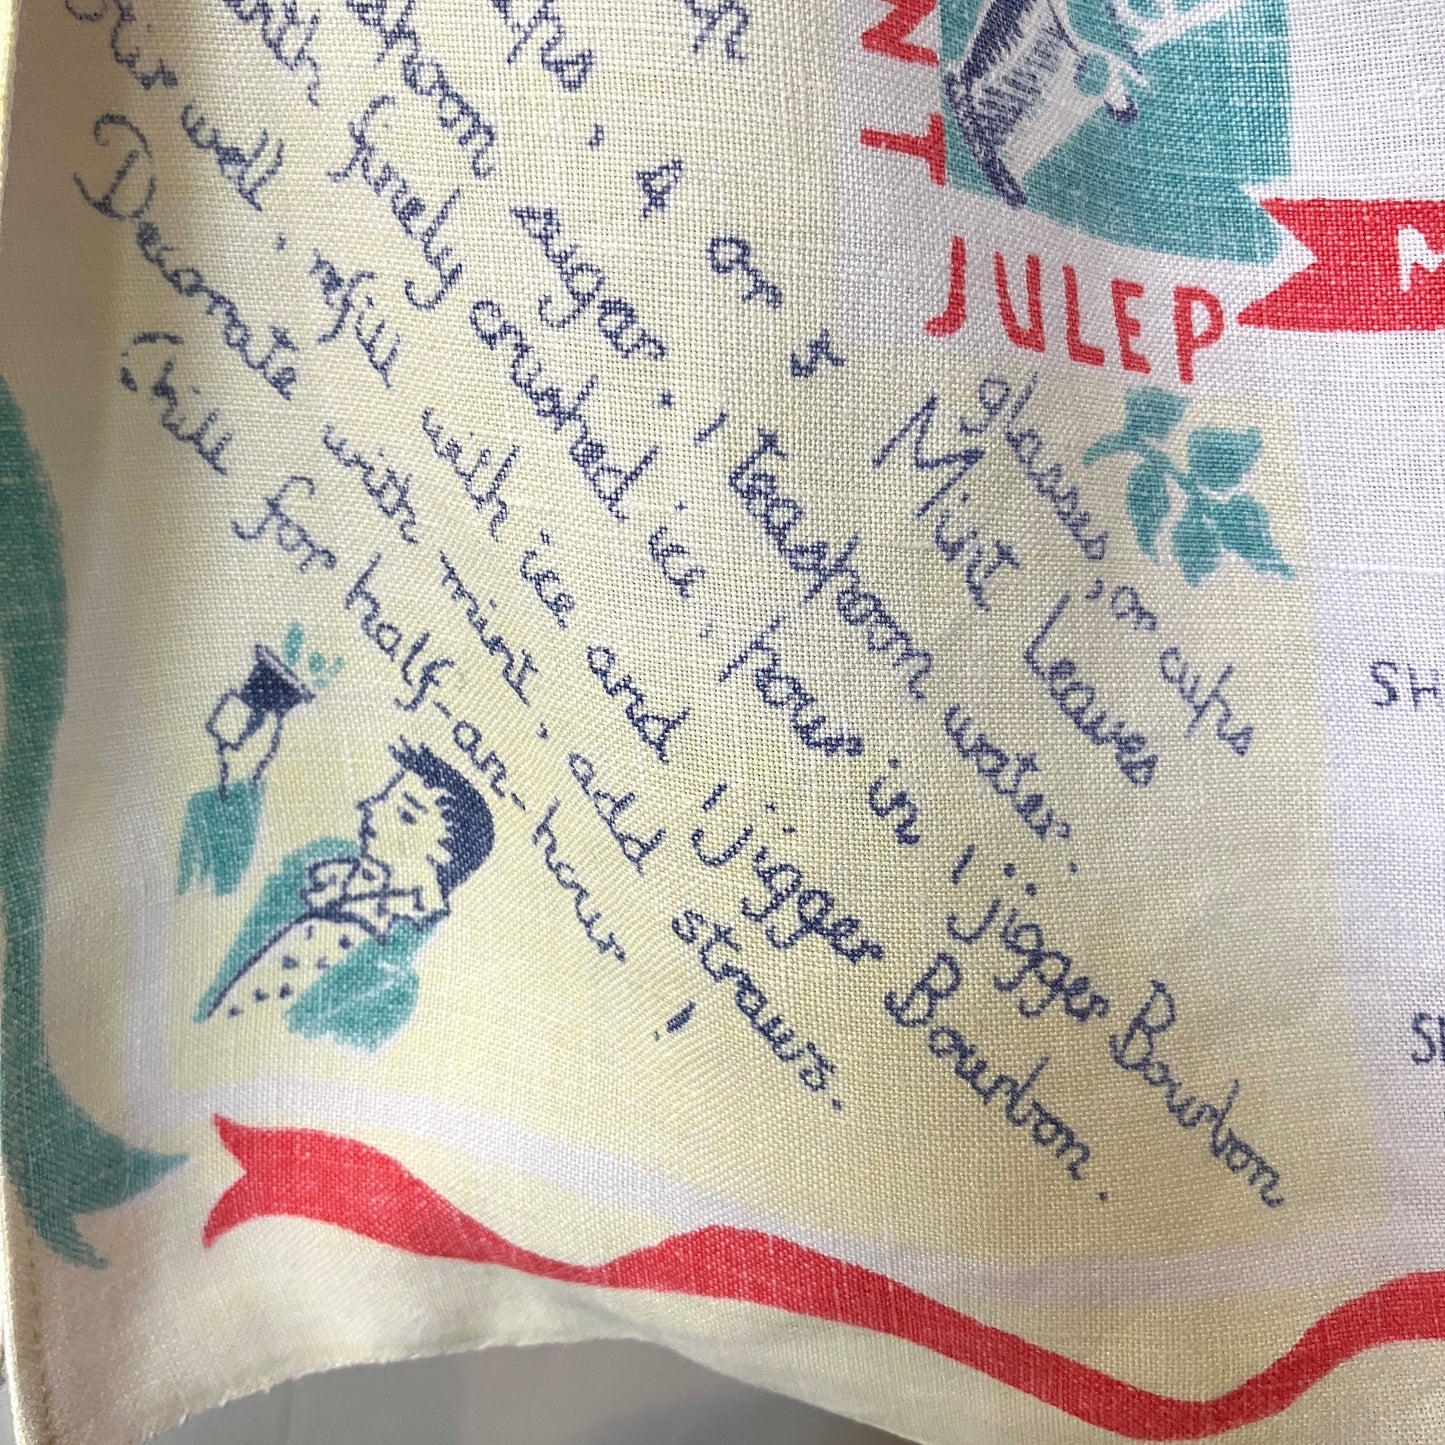 NT
JULEP
glasses, or cups
4 or 5 Mint Leaves
sugar; 1 teaspoon water.
finely crushed ice, pour in 1 jigger Bourbon
Stir well, refill with ice and 1 jigger Bourbon.
Decorate with mint, add straws.
Chill for half-an-hour!
SH